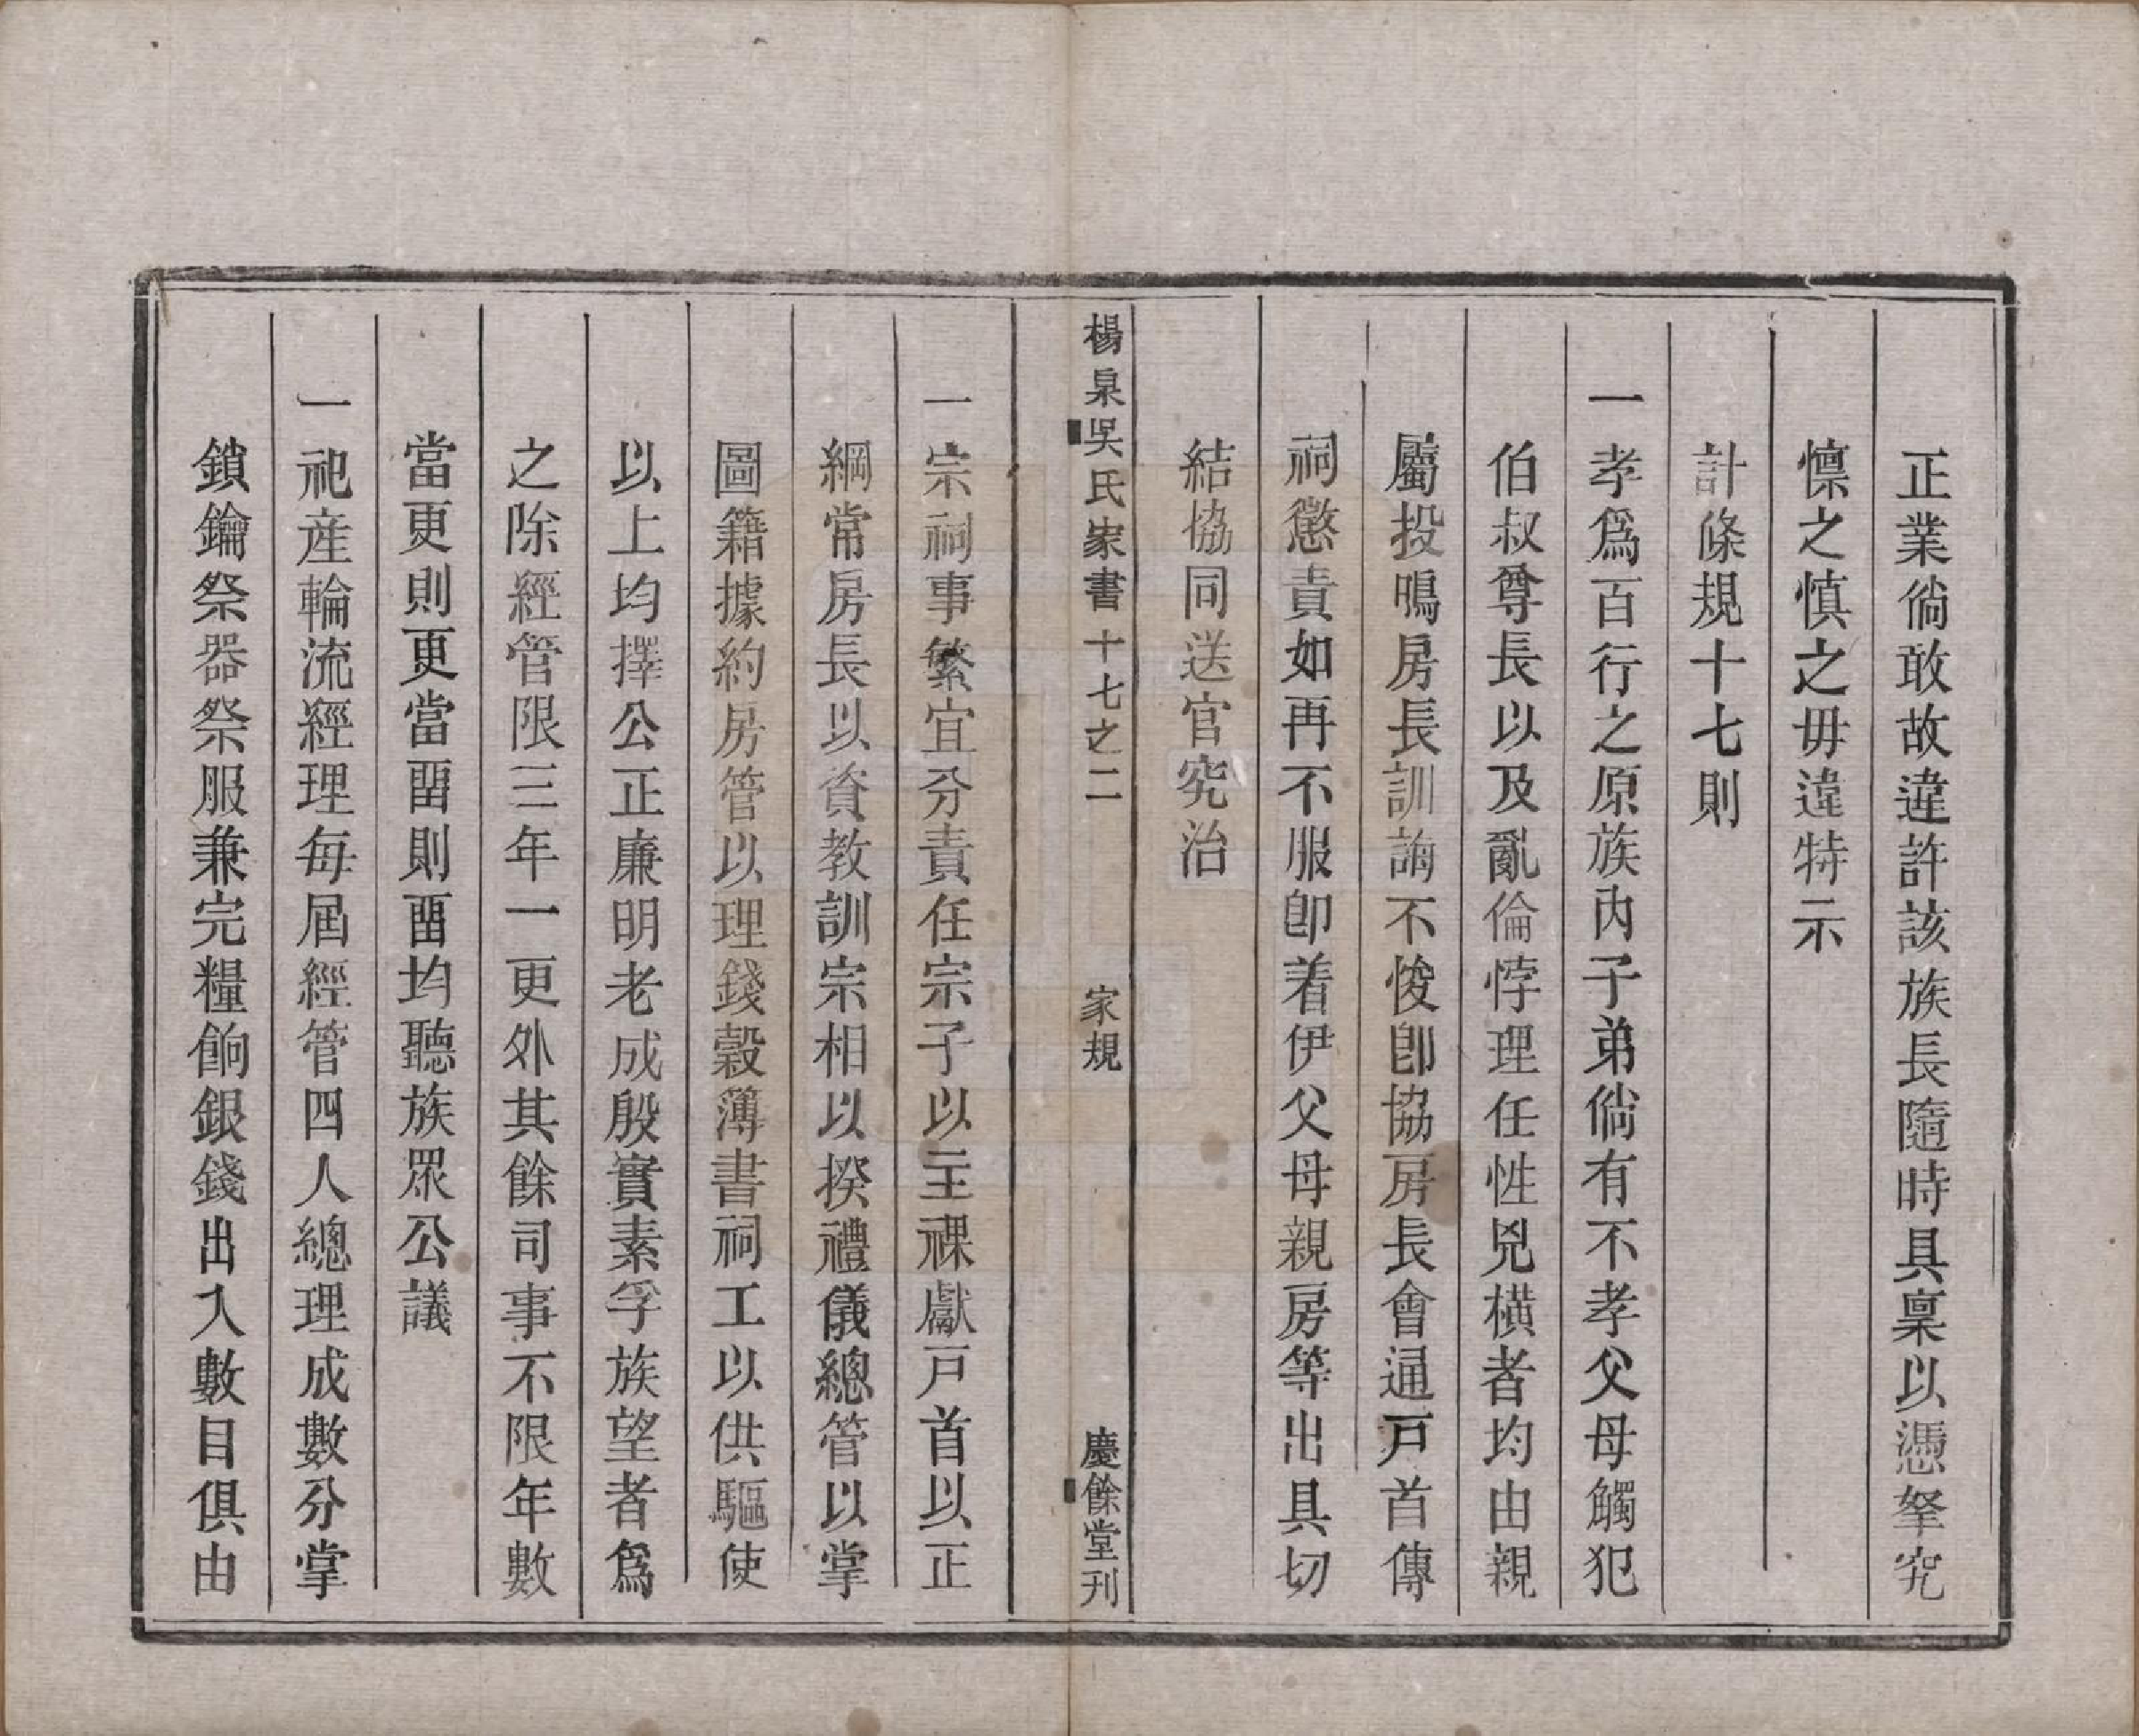 正業倘敢故違許該族長隨時具稟以憑拏究
懔之慎之毋違特示
計條規十七則
一孝爲百行之原族內子弟倘有不孝父母觸犯
伯叔尊長以及亂倫悖理任性兇橫者均由親
屬投鳴房長訓誨不悛卽協房長會通戸首傳
祠懲責如再不服卽着伊父母親房等出具切
結協同送官究治
楊泉吳氏家書十七之二　家規　慶餘堂刊
一宗祠事繁宜分責任宗子以主祼獻戸首以正
綱常房長以資教訓宗相以揆禮儀總管以掌
圖籍據約房管以理錢穀簿書祠工以供驅使
以上均擇公正廉明老成殷實素孚族望者爲
之除經管限三年一更外其餘司事不限年數
當更則更當畱則畱均聽族眾公議
一祀産輪流經理每屆經管四人總理成數分掌
鎖鑰祭器祭服兼完糧餉銀錢出入數目俱由